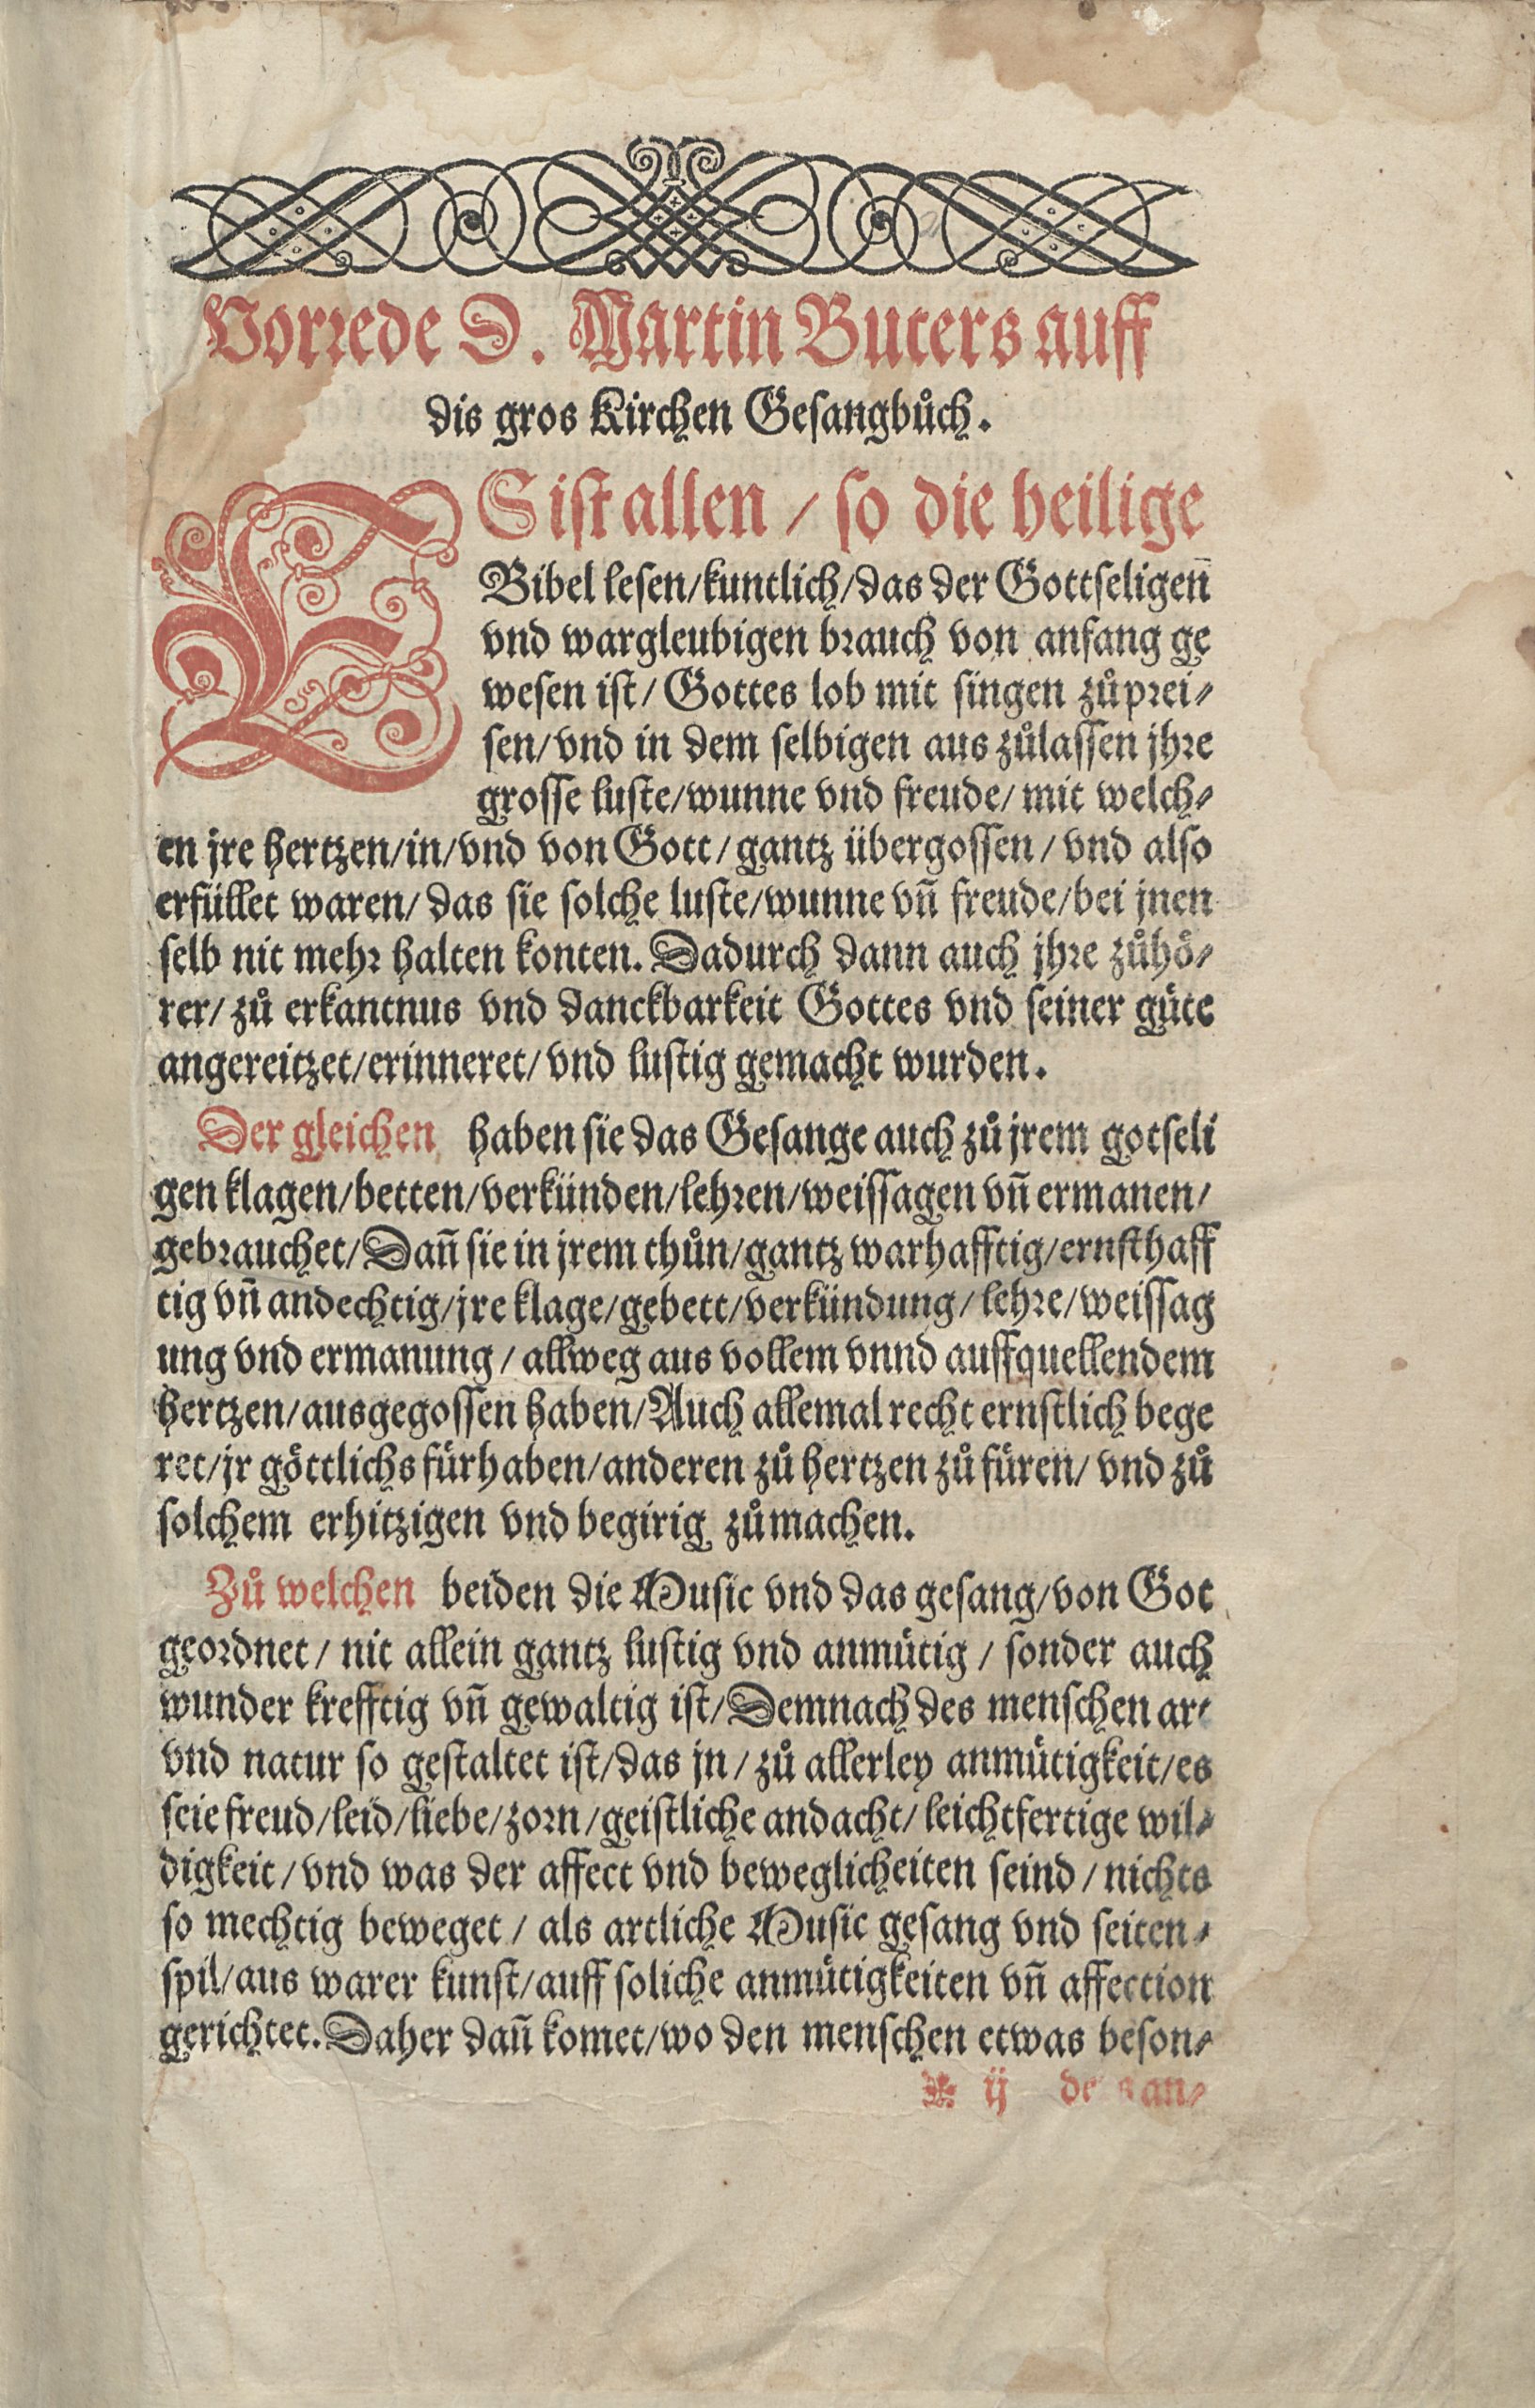 Vorrede D. Martin Bucers auff
dis gros Kirchen Gesangbůch.
ES ist allen / so die heilige
Bibel lesen/kuntlich/das der Gottseligen̄
vnd wargleubigen brauch von anfang ge
wesen ist/ Gottes lob mit singen zůprei⸗
sen/vnd in dem selbigen aus zůlassen jhre
grosse luste/wunne vnd freude/ mit welch⸗
en jre hertzen/in/vnd von Gott/ gantz übergossen / vnd also
erfüllet waren/ das sie solche luste/wunne vn̄ freude/bei jnen
selb nit mehr halten konten. Dadurch dann auch jhre zůhö⸗
rer/ zů erkantnus vnd danckbarkeit Gottes vnd seiner güte
angereitzet/erinneret/ vnd lustig gemacht wurden.
Der gleichen haben sie das Gesange auch zů jrem gotseli
gen klagen/betten/verkünden/lehren/weissagen vn̄ ermanen/
gebrauchet/ Dan̄ sie in jrem thůn/gantz warhafftig/ernsthaff
tig vn̄ andechtig/jre klage/gebett/verkündung/ lehre/weissag
ung vnd ermanung / allweg aus vollem vnnd auffquellendem
hertzen/ausgegossen haben/Auch allemal recht ernstlich bege
ret/jr göttlichs fürhaben/anderen zů hertzen zů füren/ vnd zů
solchem erhitzigen vnd begirig zůmachen.
Zů welchen beiden die Music vnd das gesang/von Got
geordnet / nit allein gantz lustig vnd anmütig / sonder auch
wunder krefftig vn̄ gewaltig ist/Demnach des menschen art
vnd natur so gestaltet ist/das jn / zů allerley anmütigkeit/es
seie freud/leid/liebe/zorn/geistliche andacht/ leichtfertige wil⸗
digkeit/vnd was der affect vnd beweglicheiten seind / nichts
so mechtig beweget / als artliche Music gesang vnd seiten⸗
spil/aus warer kunst/auff soliche anmütigkeiten vn̄ affection
gerichtet. Daher dan̄ komet/wo den menschen etwas beson⸗
❧ ij ders an⸗